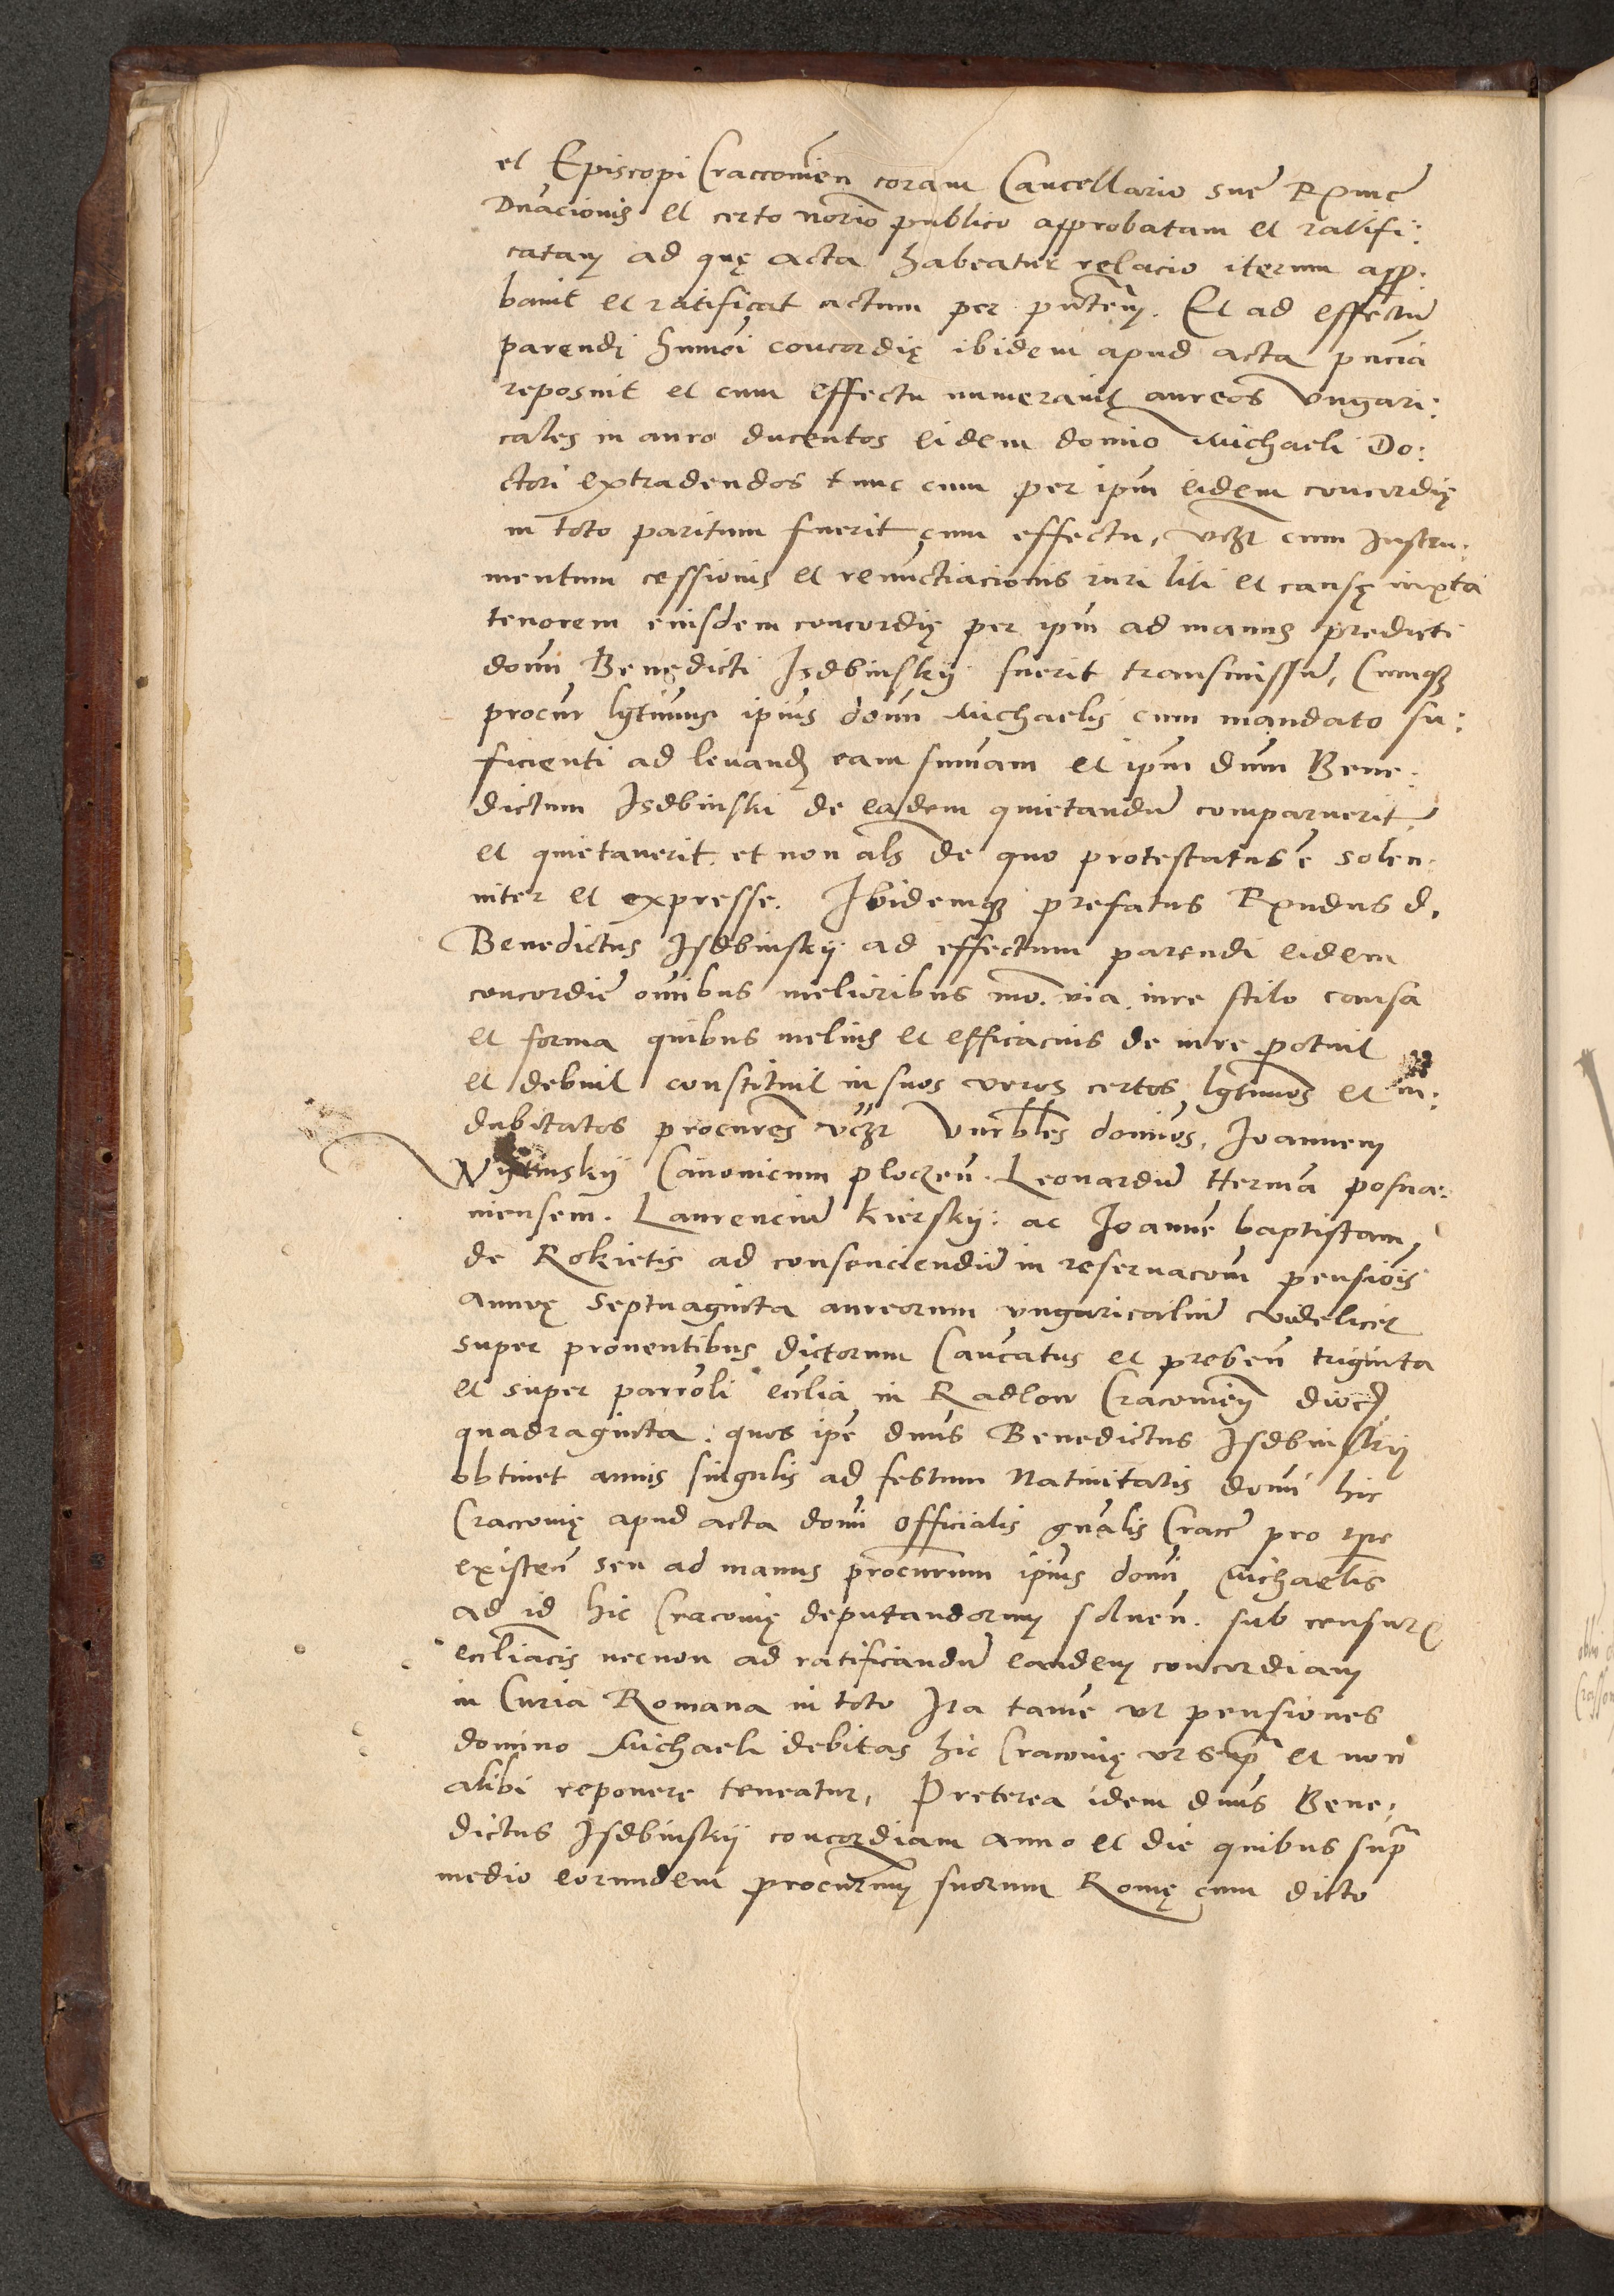 et Episcopi Craccovien̄ coram Cancellario sue Rx̄me
Dn̄acionis et certo nōrio publico approbatam et ratifi:
catam ad quę acta habeatur relacio iterum appro:
bavit et ratificat actum per pn̄tem. Et ad effectū
parendi hm̄oi concordię ibidem apud acta pn̄cia
reposuit et cum effectu numeravit aureos vngari:
cales in auro ducentos eidem domino Michaeli Do:
ctori extradendos tunc cum per ipm̄ eidem concordię
in toto paritum fuerit cum effectu, vcꝫt cum Instru:
mentum cessionis et renunctiacionis iuri liti et causę iuxta
tenorem eiusdem concordię per ipm̄ ad manus predicti
domī Benedicti Isdbinskÿ fuerit transmissū, Cumqꝫ
procur lg̅timus ipīus domī Michaelis cum mandato su:
ficienti ad levand̄ eam sum̄am et ipm̄ dnūm Bene:
dictum Isdbinski de eadem quietandū comparuerit
et quietaverit et non als̄ de quo protestatus ē solen:
niter et expresse. Ibidemqꝫ prefatus Rx̄ndus d.
Benedictus Isdbinskÿ ad effectum parendi eidem
concordię om̄ibus melioribus mō. via iure stilo causa
et forma quibus melius et efficacius de iure potuit
et debuit constituit in suos veros certos lg̅timos et in:
dubitatos procur̄es vcꝫt Vn̄rbles domīos, Ioannem
Canonicum plocen̄. Leonardū Herma posna:
niensem. Laurenciū Kierskÿ: ac Ioannē baptistam
de Rokietis ad consenciendū in reservacōm pensiōis
annuę septuaginta aureorum vngaricaliū videlicet
super proventibus dictorum Cancatus et preben̄ triginta
et super parroli eccl̄ia in Radlow Cracovien̄ dioc̄
quadraginta: quos ipē dn̄us Benedictus Isdbinskÿ
obtinet annis singulis ad festum Nativitatis domī hic
Craccovię apud acta domī officialis gn̄alis Cracc̄ pro tpre
existen̄ seu ad manus procurūm ipīus domī Michaelis
ad id hic Cracovię deputandorum solven̄. sub censuris
eccl̄iacis necnon ad ratificandū eandem concordiam
in Curia Romana in toto Ita tamē ut pensiones
domino Michaeli debitas hic Cracovię ut sup̄ et non
alibi reponere teneatur, Preterea idem dn̄us Bene:
dictus Isdbinskÿ concordiam anno et die quibus sup̄
medio eorundem procur̄um suorum Romę cum dicto